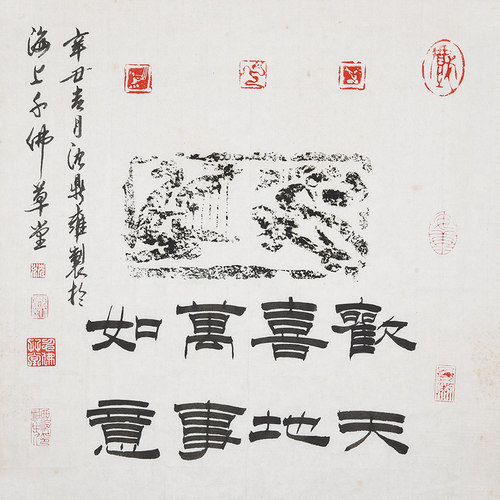 歡天
喜地
萬事
如意
辛丑吉月沈鼎雍製於
海上千佛草堂